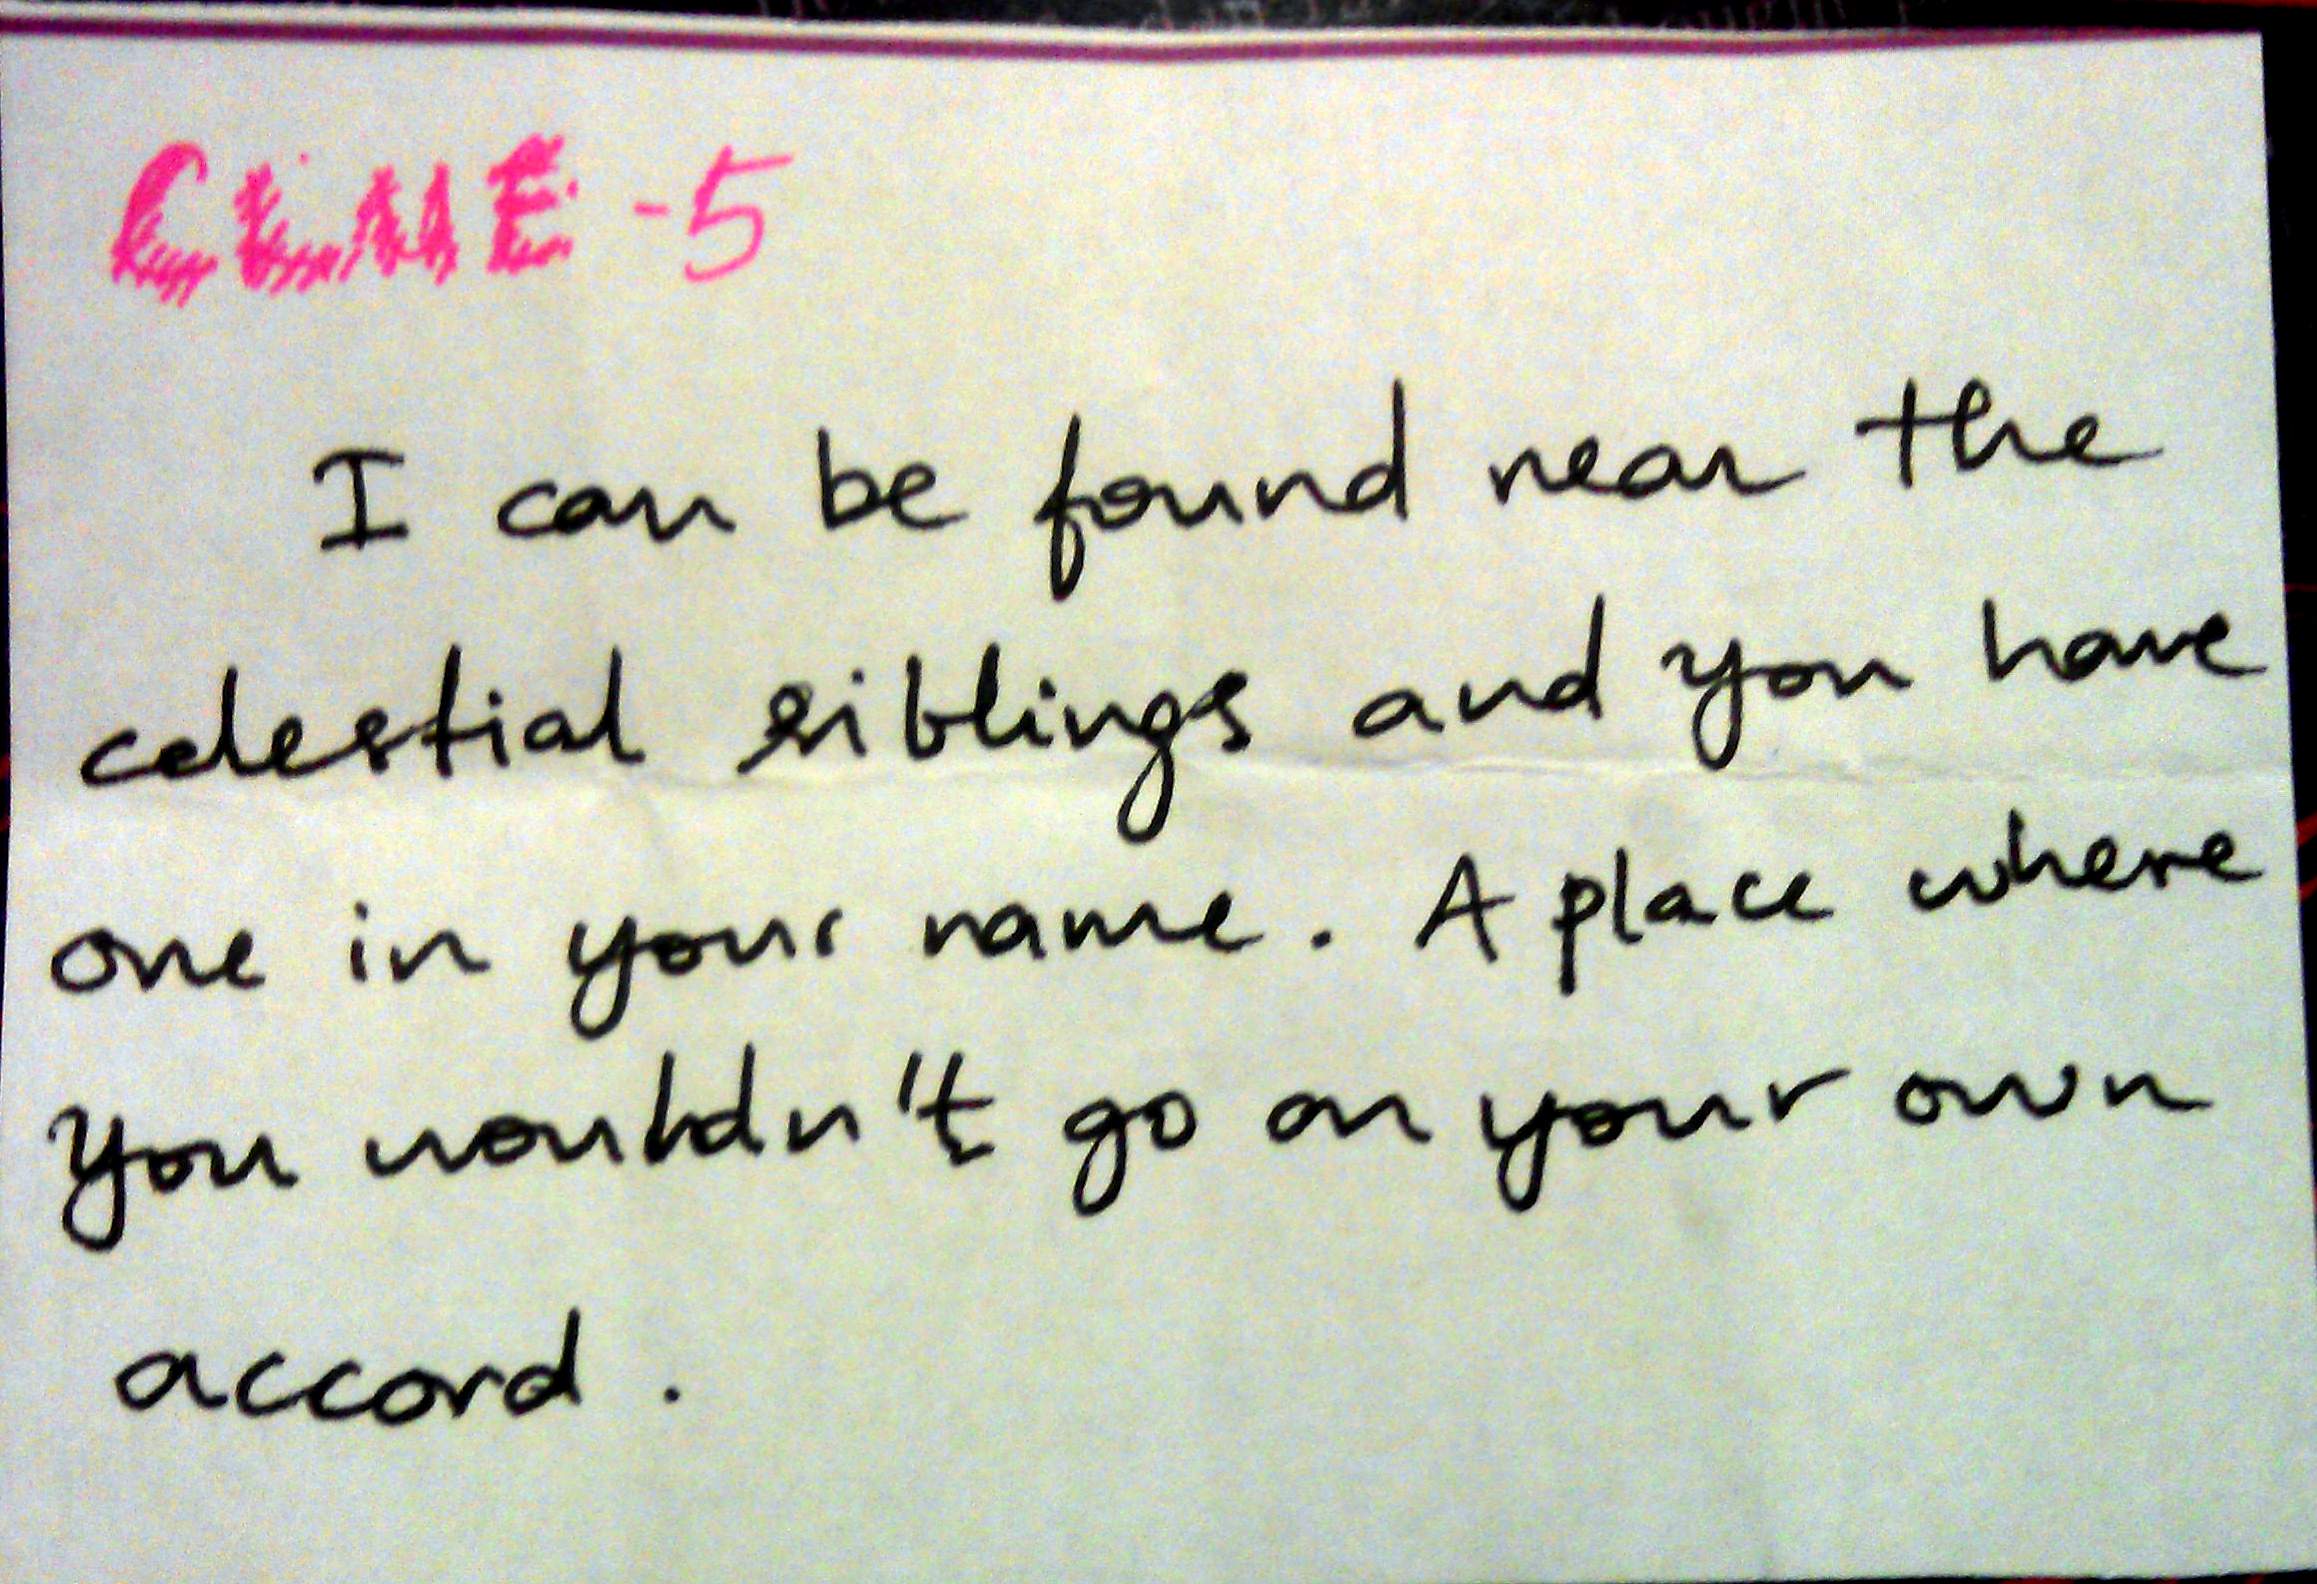 CLUE -5
I can be found near the
celestial siblings and you have
one in your name. A place where
you wouldn't go on your own
accord.